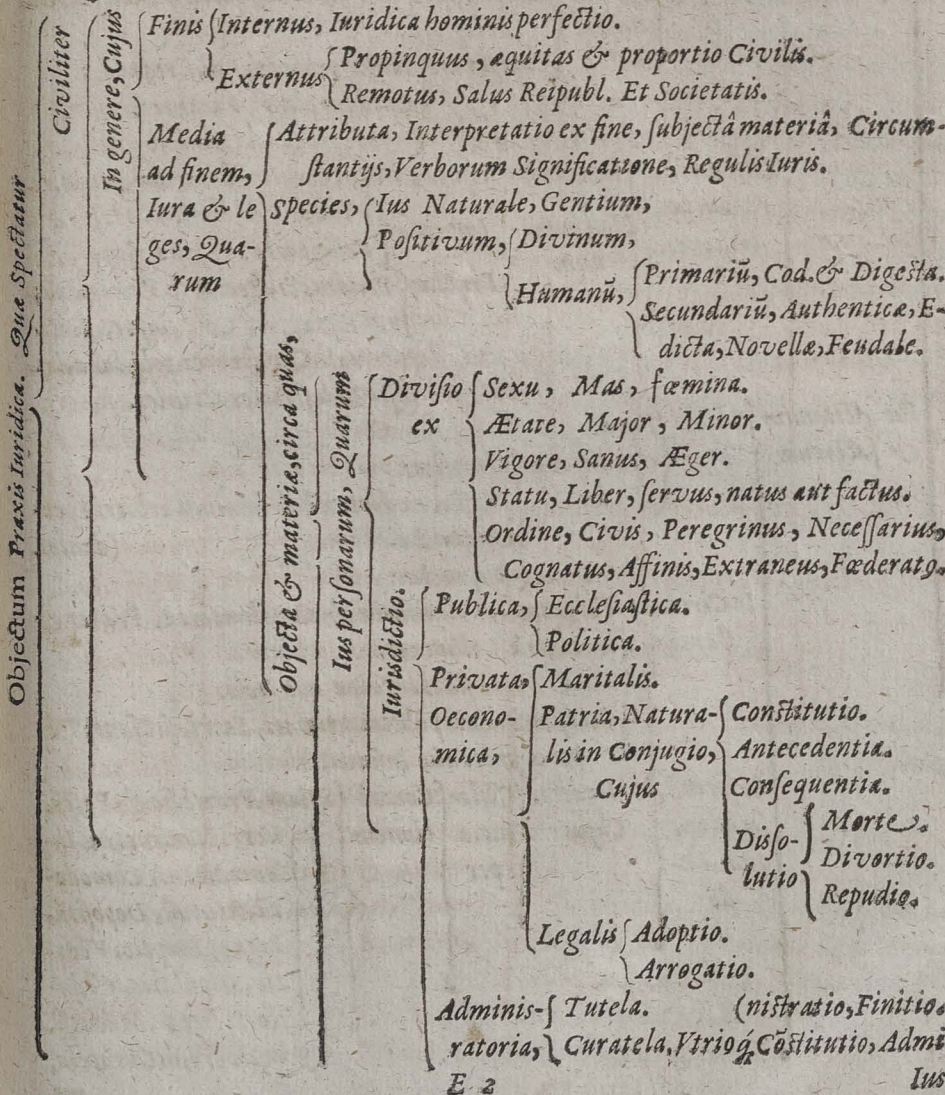 Objectum Praxis Iuridica. Quæ Spectatur
Civiliter
In genere, Cujus
Finis Internus, Iuridica hominis perfectio.
Externus Propinquus, æquitas & proportio Civilis.
Remotus, Salus Reipubl. Et Societatis.
Media ad finem,
Attributa, Interpretatio ex fine, ſubjectâ materiâ, Circum-
ſtantijs, Verborum Significatione, Regulis Iuris.
Iura & le
ges, Qua-
rum
Species, Ius Naturale, Gentium,
Poſitivum, Divinum,
Humanū, Primariū, Cod. & Digeſta.
Secundariū, Authenticæ, E-
dicta, Novellæ, Feudale.
Objecta & materiæ, circa quas,
Ius perſonarum, Quarum
Diviſio ex
Sexu, Mas, fœmina.
Ætate, Major, Minor.
Vigore, Sanus, Æger.
Statu, Liber, ſervus, natus aut factus.
Ordine, Civis, Peregrinus, Neceſſarius,
Cognatus, Affinis, Extraneus, Fœderatꝰ.
Iurisdictio.
Publica, Eccleſiaſtica.
Politica.
Privata, Maritalis.
Oecono-
mica,
Patria, Natura-
lis in Conjugio,
Cujus
Conſtitutio.
Antecedentia.
Conſequentia.
Diſſo-
lutio
Morte.
Divortio.
Repudio.
Legalis Adoptio.
Arrogatio.
Adminis- Tutela. (niſtratio, Finitio.
ratoria, Curatela, Vtrioq́; Cōſtitutio, Admi
E 2 Ius